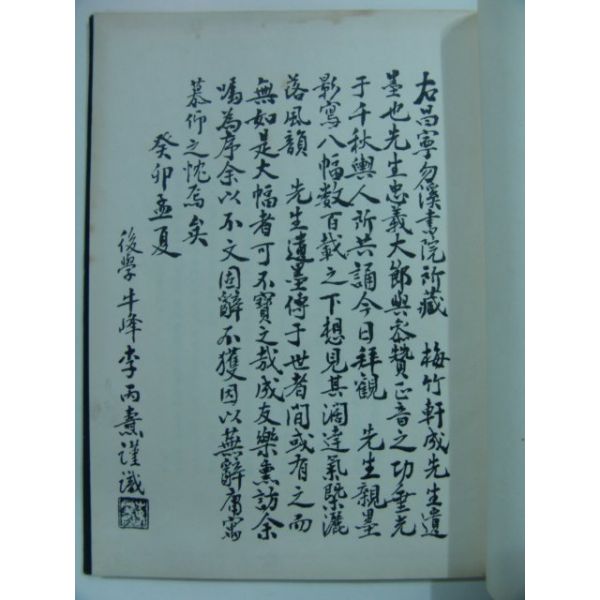 右昌寧勿溪書院所藏 梅竹軒成先生遺
墨也先生忠義大節與參贊正音之功垂光
于千秋輿人所共誦今日拜觀 先生親墨
影寫八幅數百載之下想見其濶達氣槩灑
落風韻 先生遺墨傳于世者間或有之而
無如是大幅者可不寶之哉成友樂熏訪余
囑為序余以不文固辭不獲因以蕪辭庸寓
慕仰之忱焉矣
癸卯孟夏
後學牛峰李丙燾謹識